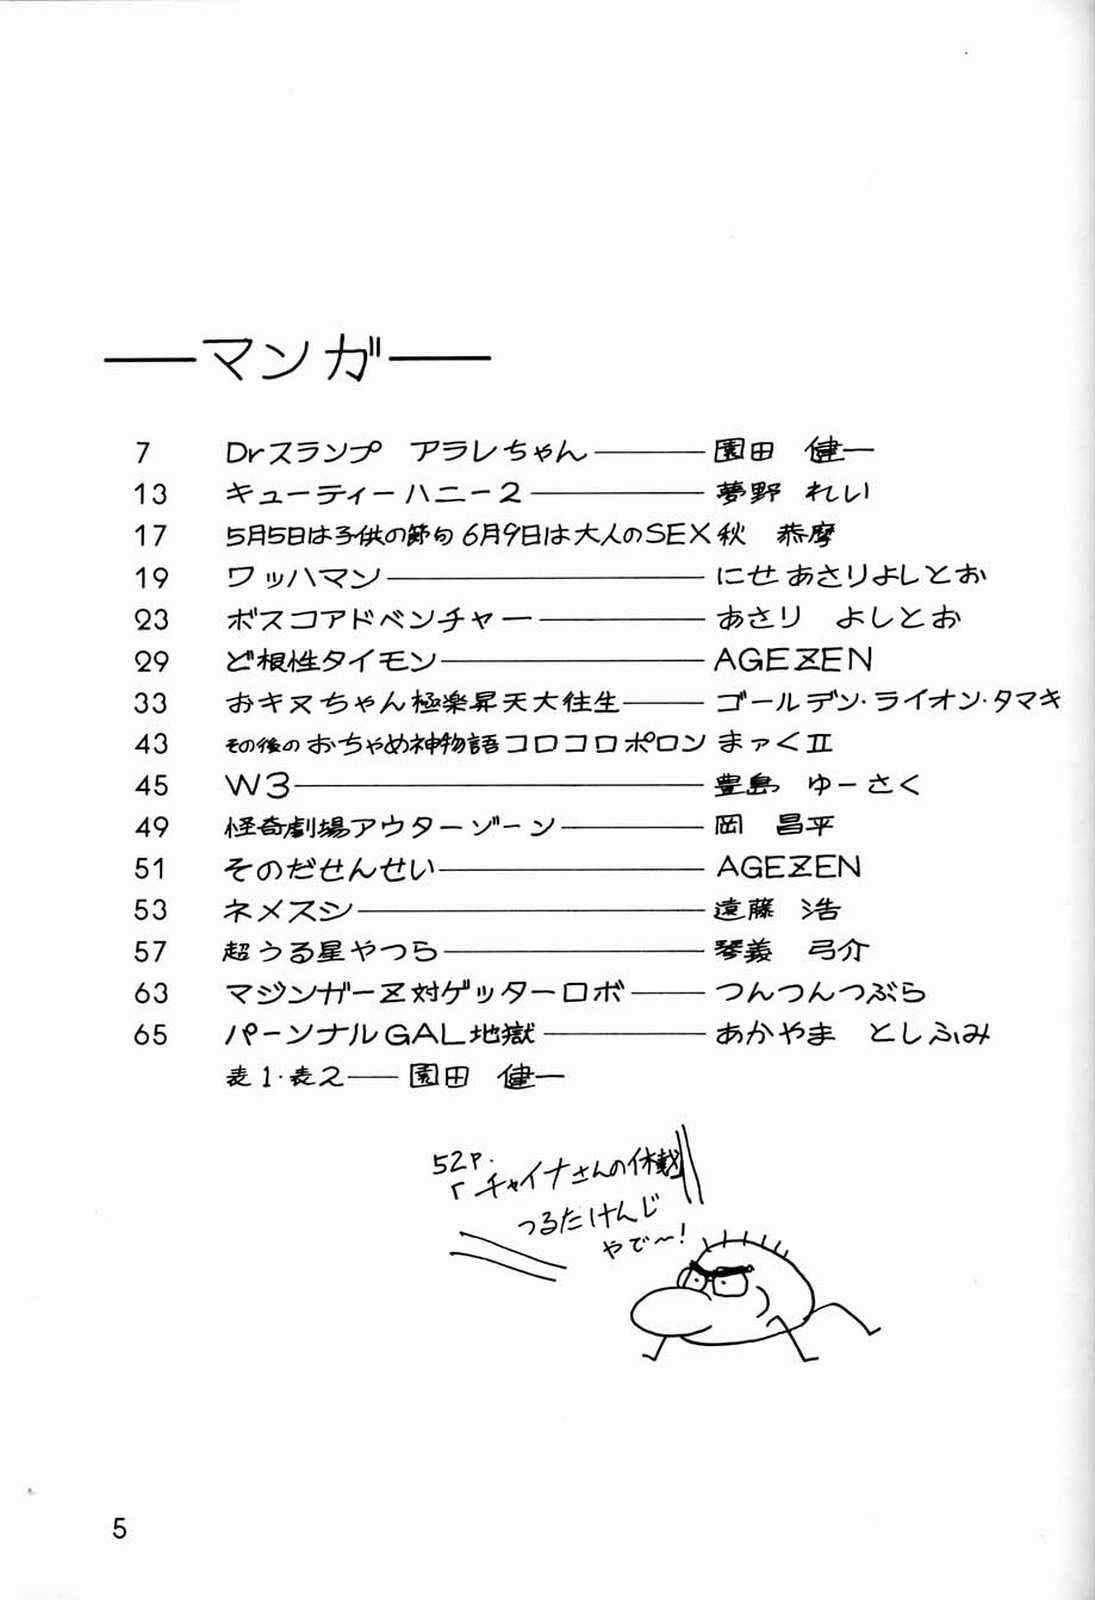 マンガ
7 Drスランプ アラレちゃん 園田 健一
13 キューティーハニー2 夢野 れい
17 5月5日は子供の節句 6月9日は大人のSEX 秋 恭摩
19 ワッハマン にせ あさりよしとお
23 ボスコアドベンチャー あさり よしとお
29 ど根性タイモン AGEZEN
33 おキヌちゃん極楽昇天大往生 ゴールデン・ライオン・タマキ
43 その後の おちゃめ神物語コロコロポロン まァくⅡ
45 W3 豊島 ゆーさく
49 怪奇劇場アウターゾーン 岡 昌平
51 そのだせんせい AGEZEN
53 ネメスシ 遠藤 浩
57 超うる星やつら 琴義 弓介
63 マジンガーZ対ゲッターロボ つんつんつぶら
65 パーソナルGAL地獄 あかやま としふみ
表1・表2 園田 健一
52P.
「チャイナさんの休載
つるたけんじ
やで〜!
5